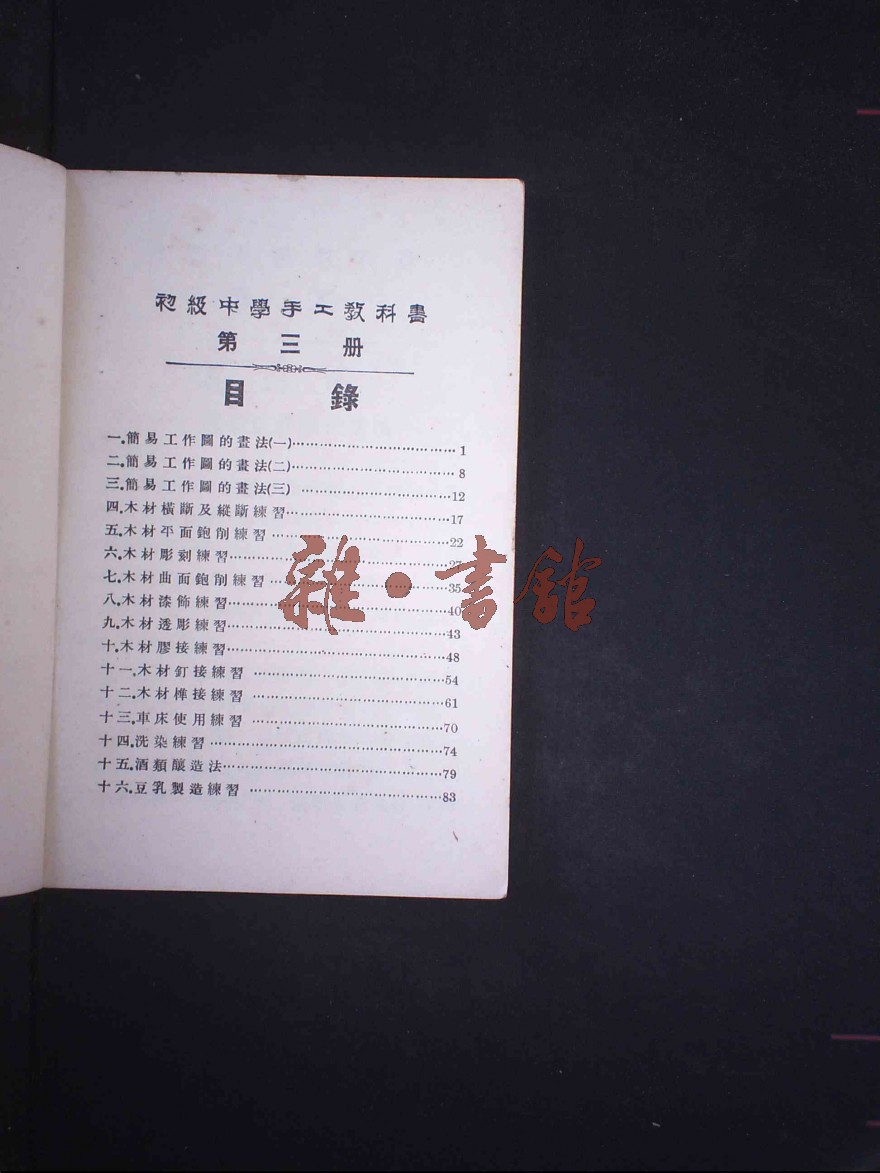 初級中學手工教科書
第三册
目錄
一.簡易工作圖的畫法(一)……………………………1
二.簡易工作圖的畫法(二)……………………………8
三.簡易工作圖的畫法(三) …………………………12
四.木材橫斷及縱斷練習……………………………17
五.木材平面鉋削練習 ……………………………22
六.木材彫刻練習……………………………………27
七.木材曲面鉋削練習 ……………………………35
八.木材漆飾練習……………………………………40
九.木材透彫練習……………………………………43
十.木材膠接練習……………………………………48
十一.木材釘接練習 ………………………………54
十二.木材榫接練習 ………………………………61
十三.車床使用練習 ………………………………70
十四.洗染練習………………………………………74
十五.酒類釀造法……………………………………79
十六.豆乳製造練習 ………………………………83
雜·書館